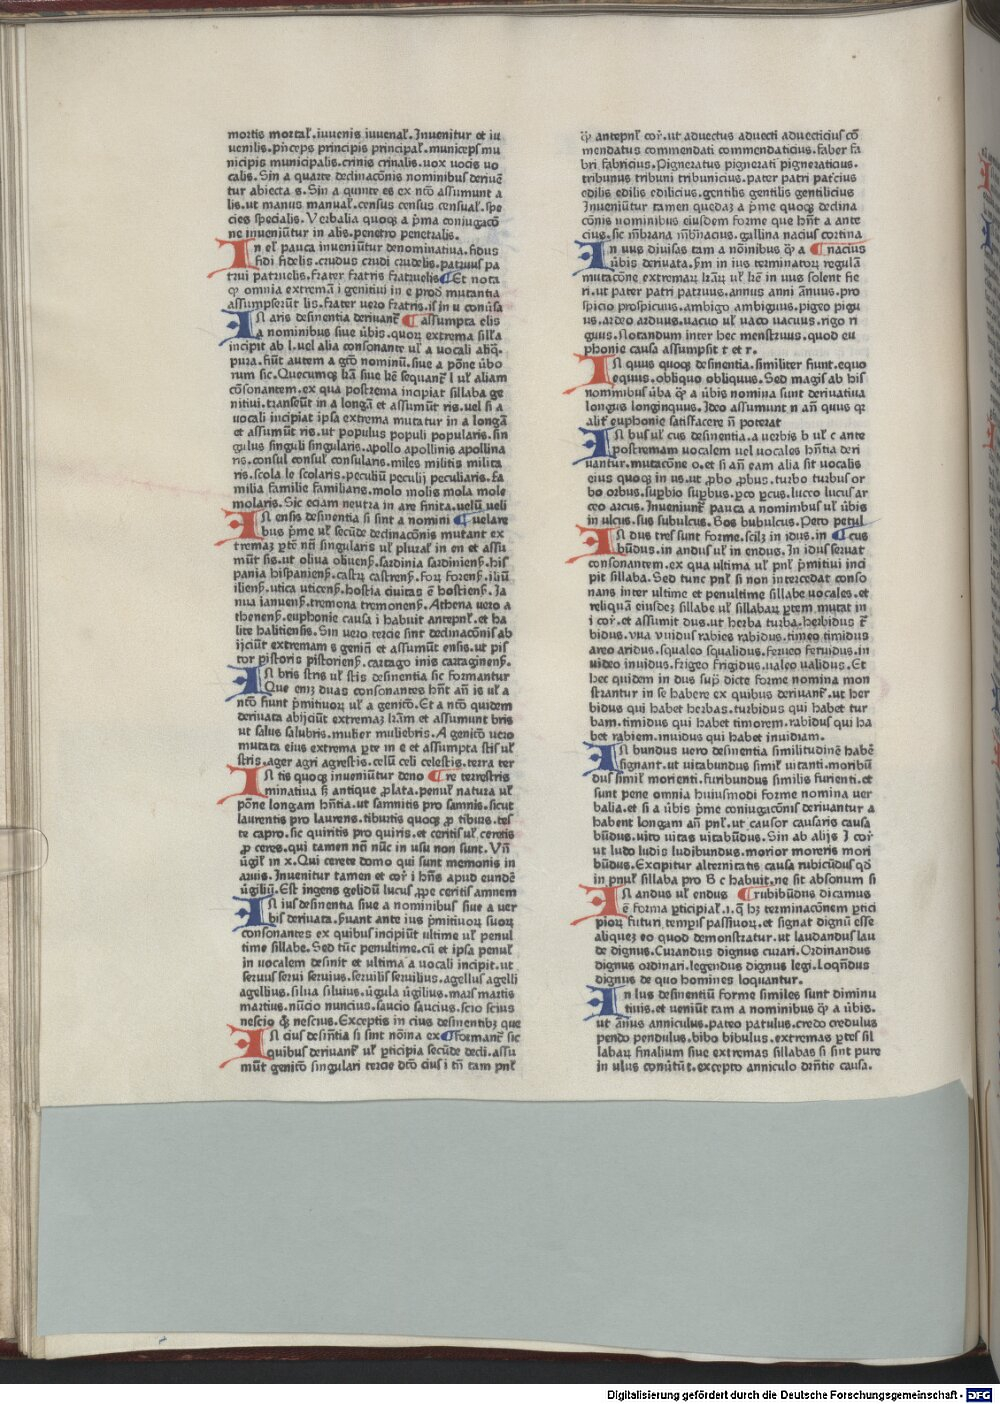 mortis mortał.iuvenis iuvenał.Inuenitur et iu
uenilis.pⁱnceps principis principał.municeps mu
nicipis municipalis.crinis crinalis.uox uocis uo
calis.Sin a quarte declinacōnis nominibus deriuē
tur abiecta s.Sin a quinte es ex ntō assumunt a
lis.ut manus manuał.census census censuał.spe
cies specialis. Verbalia quoqꝫ a p̄ma coniugacō
ne inueniūtur in alis.penetro penetralis.
In eł pauca inueniūtur denominatiua.fidus
fidi fidelis.crudus crudi crudelis.patruus pa
trui patruelis.frater fratris fratruelis Et nota
ꝙ omnia extremā i genitiui in e prod mutantia
assumpserūt lis.frater uero fratris.is in u conūsa
IN aris desinentia deriuant᷑ assumpta elis
a nominibus siue ūbis.quoꝝ extrema sill̄a
incipit ab l.uel alia consonante uł a uocali abqꝫ
pura.fiūt autem a gtō nominū.siue a pōne ūbo
rum sic.Quecumqꝫ łā siue łē sequant᷑ l uł aliam
cōsonantem.ex qua postrema incipiat sillaba ge
nitiui.transeūt in a longā et assumūt ris.uel si a
uocali incipiat ipsa extrema mutatur in a longā
et assumūt ris.ut populus populi popularis.sin
gulus singuli singularis.apollo apollinis apollina
ris.consul consuł consularis.miles militis milita
ris.scola le scolaris.peculiū peculij peculiaris.fa
milia familie familiaris.molo molis mola mole
molaris.Sic eciam neutra in are finita.uelū ueli
IN ensis desinentia si sint a nomini uelare
bus p̄me uł secūde declinacōnis mutant ex
tremaꝫ ꝑtē nti singularis uł plurał in en et assu
mūt sis.ut oliua oliuenſ.sardinia sardinienſ.his
pania hispanienſ.castꝝ castrenſ.foꝝ forenſ.iliū
ilienſ.utica uticenſ.hostia ciuitas ē hostienſ.Ia
nua ianuenſ.tremona tremonenſ.Athena uero a
thenenſ.euphonie causa i habuit antepnł.et ha
lite halitiensis.Sin uero tercie sint declinacōnis ab
ijciūt extremam s genitī et assumūt ensis.ut pis
tor pistoris pistorienſ.cartago inis cartaginenſ.
IN bris stris uł stis desinentia sic formantur
Que enīꝫ duas consonantes hn̄t añ is uł a
ntō fiunt p̄mitiuoꝝ uł a genitō.Et a ntō quidem
deriuata abijciūt extremaꝫ łram et assumunt bris
ut salus salubris.mulier muliebris.A genitō uero
mutata eius extrema ꝑte in e et assumpta stis uł
stris.ager agri agrestis.celū celi celestis.terra ter
IN tis quoqꝫ inueniūtur deno re terrestris
minatiua sꝫ antique ꝓlata.penuł natura uł
pōne longam hn̄tia.ut samnitis pro samnis.sicut
laurentis pro laurens.tiburtis quoqꝫ ꝓ tiburs.tes
te capro.sic quiritis pro quiris.et ceritis uł ceretis
ꝓ ceres.qui tamen nti nūc in usu non sunt.Vñ
ūgił in x.Qui cerete domo qui sunt memonis in
aruis.Inuenitur tamen et cor̄ i hn̄s apud eundē
ūgiliū.Est ingens gelidū lucus ꝓpe ceritis amnem
IN ius desinentia siue a nominibus siue a uer
bis deriuata.ẜuant ante ius p̄mitiuoꝝ suoꝝ
consonantes ex quibus incipiūt ultime uł penul
time sillabe.Sed tūc penultime.cū et ipsa penuł
in uocalem desinit et ultima a uocali incipit.ut
seruus serui seruius.seruilis seruilius.agellus agelli
agellius.silua siluius.ūgula ūgilius.mars martis
martius.nūcio nuncius.saucio saucius.scio scius
nescio ꝗ nescius.Exceptis in cius desinentibꝫ que
IN cius desinēntia si sint nōina ex formant᷑ sic
quibus deriuant᷑ uł ꝑticipia secūde decli.assu
mūt genitō singulari tercie dtō cius i tñ tam pnł
ꝙ antepnł cor̄.ut aduectus aduecti aduecticius cō
mendatus commendati commendaticius.faber fa
bri fabricius.Pigneratus pignerati pigneraticius.
tribunus tribuni tribunicius.pater patri patricius
edilis edilis edilicius.gentilis gentilis gentilicius
Inueniūtur tamen quedaꝫ a p̄me quoqꝫ declina
cōnis nominibus eiusdem forme que hn̄t a ante
cius.sic mēbrana mēbnacius.gallina nacius cortina
IN uus diuisas tam a nōinibus ꝙ a nacius
ūbis deriuata.p̄m in ius terminatoꝝ regulā
mutacōne extremaꝝ łraꝝ uł łē in uus solent fie
ri.ut pater patri patruus.annus anni ānuus.pro
spicio prospicuus.ambigo ambiguus.pigeo pigu
us.ardeo arduus.uacuo uł uaco uacuus.rigo ri
guus.Notandum inter hec menstruus.quod eu
phonie causa assumpsit t et r.
IN quus quoqꝫ desinentia.similiter fiunt.equo
equus.obliquo obliquus.Sed magis ab his
nominibus ūba ꝙ a ūbis nomina sunt deriuatiua
longus longinquus.Ideo assumunt n añ quus q̄
alit᷑ euphonie satisfacere ñ poterat
IN bus uł cus desinentia.a uerbis b uł c ante
postremam uocalem uel uocales hn̄tia deri
uantur.mutacōne o.et si añ eam alia sit uocalis
eius quoqꝫ in us.ut ꝓbo ꝓbus.turbo turbus or
bo orbus.suꝑbio suꝑbus.ꝑco ꝑcus.luceo lucus ar
ceo arcus.Inueniunt᷑ pauca a nominibus uł ūbis
in ulcus.sus subulcus.Bos bubulcus.Peto petul
IN dus tres sunt forme.scilꝫ in idus.in cus
būdus.in andus uł in endus.In idus seruat
consonantem.ex qua ultima uł pnł p̄mitiui inci
pit sillaba.Sed tunc pnł si non intercedat conso
nans inter ultime et penultime sillabe uocales.et
reliquā eiusdeꝫ sillabe uł sillabaꝝ ꝑtem mutat in
i cor̄.et assumit dus.ut herba turba.herbidus t᷑
bidus.uua vuidus rabies rabidus.timeo timidus
areo aridus.squaleo squalidus.ferueo feruidus.in
uideo inuidus.frigeo frigidus.ualeo ualidus.Et
hec quidem in dus sup̄ dicte forme nomina mon
strantur in se habere ex quibus deriuant᷑.ut her
bidus qui habet herbas.turbidus qui habet tur
bam.timidus qui habet timorem.rabidus qui ha
bet rabiem.inuidus qui habet inuidiam.
IN bundus uero desinentia similitudinē habē
signant.ut uitabundus simił uitanti.moribū
dus simił morienti.furibundus similis furienti.et
sunt pene omnia huiusmodi forme nomina ver
balia.et si a ūbis p̄me coniugacōnis deriuantur a
habent longam añ pnł.ut causor causaris causa
būdus.uito uitas uitabūdus.Sin ab alijs I cor̄
ut ludo ludis ludibundus.morior moreris mori
būdus.Excipitur alternitatis causa rubicūdus qđ
in pnuł sillaba pro B c habuit.ne sit absonum si
IN andus uł endus rubibūdus dicamus
ē forma ꝑticipiał.i.q̄ hꝫ terminacōnem ꝑtici
pioꝝ futuri tempis passiuoꝝ.et signat dignū esse
aliqueꝫ eo quod demonstratur.ut laudandus lau
de dignus.Curandus dignus curari.Ordinandus
dignus ordinari.legendus dignus legi.Loqn̄dus
dignus de quo homines loquantur.
IN lus desinentiū forme similes sunt diminu
tiuis.et ueniūt tam a nominibus ꝙ a ūbis.
ut ānus anniculus.pateo patulus.credo credulus
pendo pendulus.bibo bibulus.extremas ꝑtes sil
labaꝝ finalium siue extremas sillabas si sint pure
in ulus conūtūt.excepto anniculo drn̄tie causa.
Digitalisierung gefördert durch die Deutsche Forschungsgemeinschaft - DFG